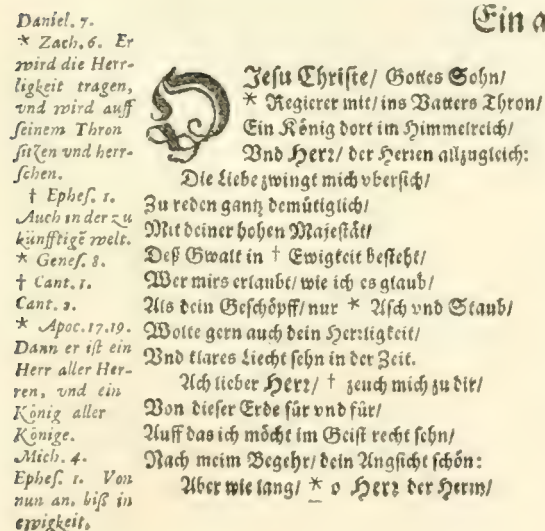 Ein a
Daniel. 7.
* Zach. 6. Er
wird die Herr-
ligkeit tragen,
vnd wird auff
seinem Thron
sitzen vnd herr-
schen.
† Ephes. 1.
Auch in der zu
künfftigē welt.
* Genes. 8.
† Cant. 1.
Cant. 2.
* Apoc. 17.19.
Dann er ist ein
Herr aller Her-
ren, vnd ein
König aller
Könige.
Mich. 4.
Ephes. 1. Von
nun an, biß in
ewigkeit.
O Jesu Christe/ Gottes Sohn/
* Regierer mit/ ins Vatters Thron/
Ein König dort im Himmelreich/
Vnd Herr/ der Herren allzugleich:
Die Liebe zwingt mich vbersich/
Zu reden gantz demütiglich/
Mit deiner hohen Majestät/
Deß Gwalt in † Ewigkeit besteht/
Wer mirs erlaubt/ wie ich es glaub/
Als dein Geschöpff/ nur * Asch vnd Staub/
Wolte gern auch dein Herrligkeit/
Vnd klares Liecht sehn in der Zeit.
Ach lieber Herr/ † zeuch mich zu dir/
Von dieser Erde für vnd für/
Auff das ich möcht im Geist recht sehn/
Nach meim Begehr/ dein Angsicht schön:
Aber wie lang/ * o Herr der Herrn/